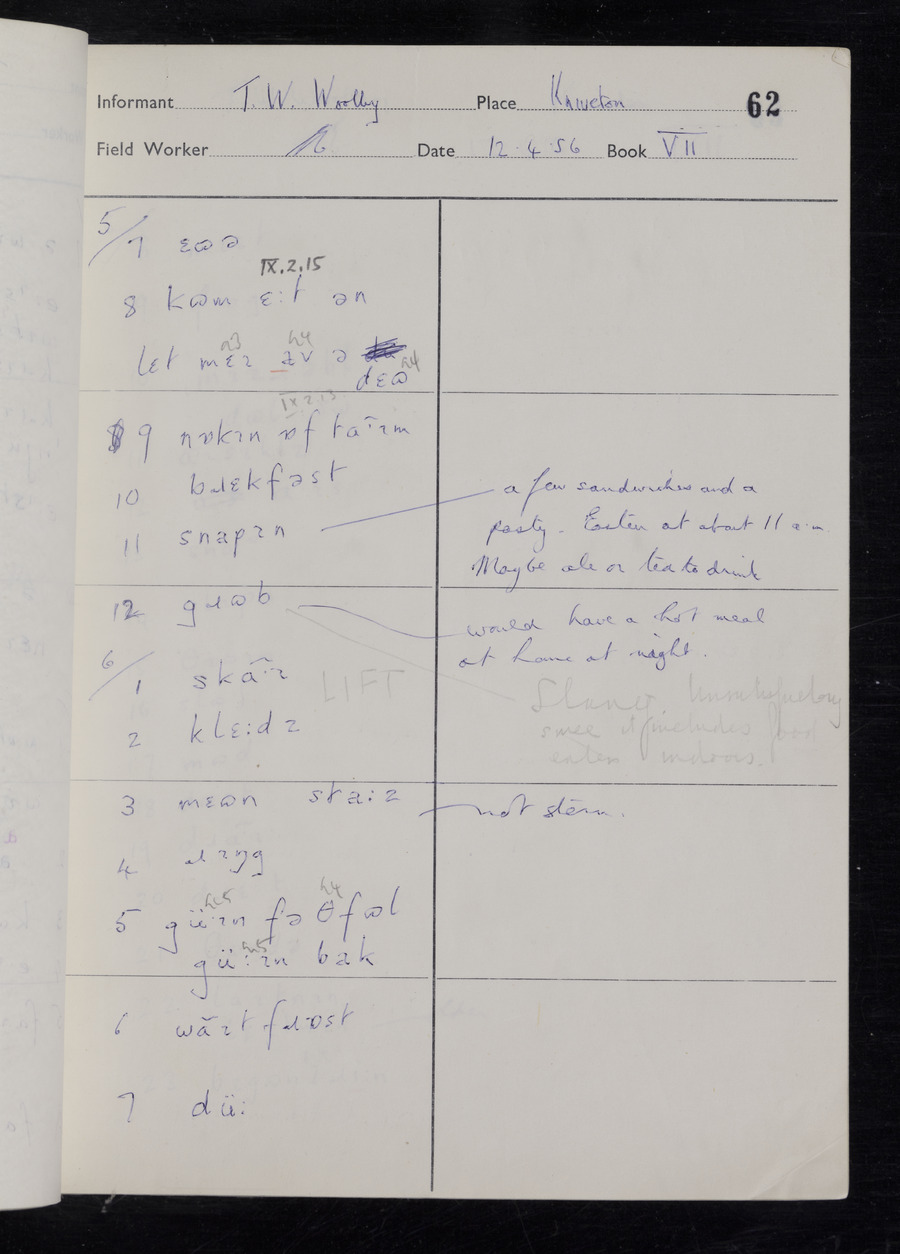 Informant T. W. Woolley Place Kniveton 62
Field Worker Date 12.4.56 Book VII
5/7 ɛɷə
IX.2.15
8 kɷm ɛ:t ən
lɛt mɛɪ əv ə dɛɷ
IX.2.13
9 nɒkɪn ɒf taˑɪm
10 bɹɛkfəst
11 snapɪn
a few sandwiches and a
pasty. Eaten at about 11 a.m.
Maybe ale or tea to drink
12 gɹɷb
would have a hot meal
at home at night.
6/1 skaˑɪ
LIFT
2 klɛ:dz
Slang. Unsatisfactory
since it includes food
eaten indoors.
3 mɛɷn sta:z
not stēɪn.
4 ɹɪŋg
5 güˑɪn fə θfɷl
güˑɪn bak
6 wāɪt fɹɒst
7 dü: